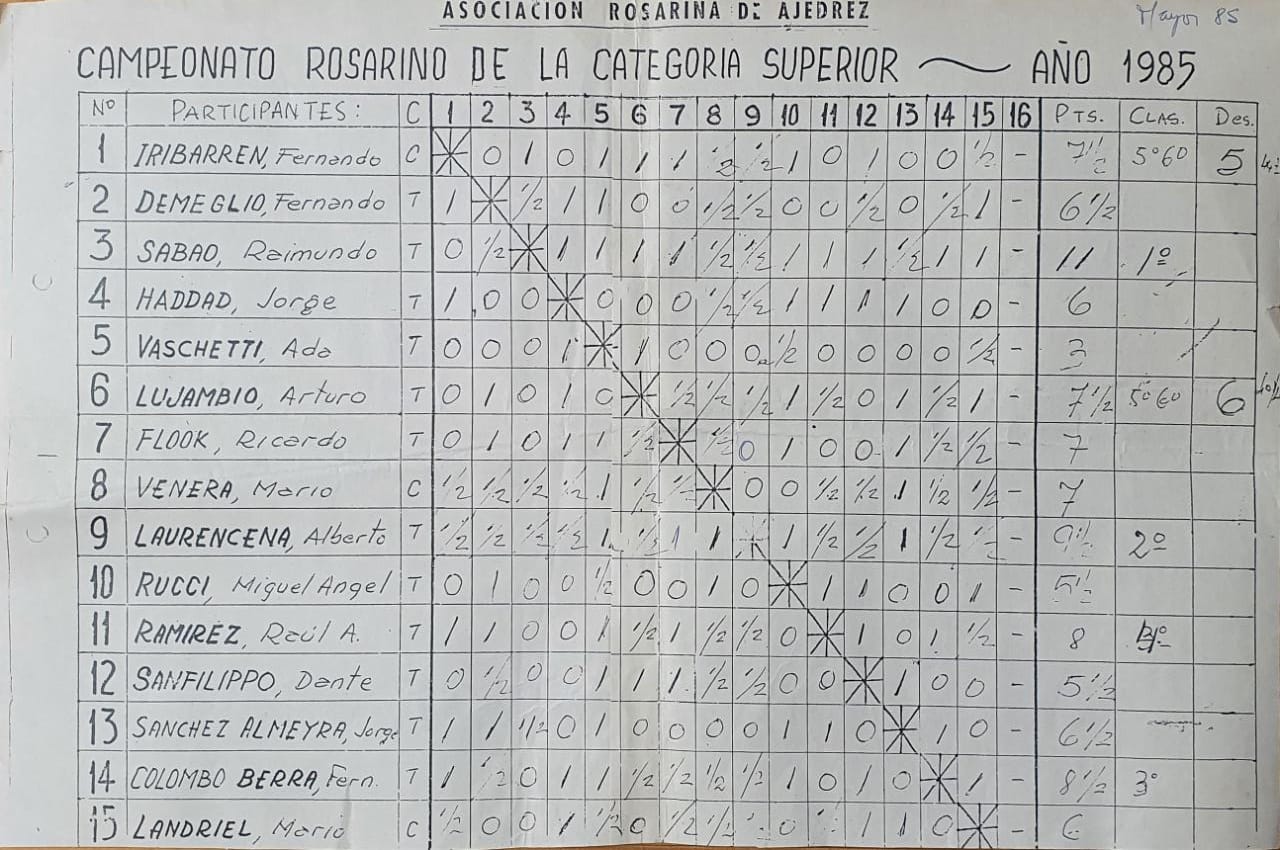 ASOCIACION ROSARINA DE AJEDREZ
Mayor 85
CAMPEONATO ROSARINO DE LA CATEGORIA SUPERIOR — AÑO 1985
Nº PARTICIPANTES: C 1 2 3 4 5 6 7 8 9 10 11 12 13 14 15 16 PTS. CLAS. Des.
1 IRIBARREN, Fernando C 0 1 0 1 1 1 ½ ½ 1 0 1 0 0 ½ - 7½ 5º60 5
2 DEMEGLIO, Fernando T 1 ½ 1 1 0 0 ½ ½ 0 0 ½ 0 ½ 1 - 6½
3 SABAO, Raimundo T 0 ½ 1 1 1 1 ½ ½ 1 1 1 ½ 1 1 - 11 1º
4 HADDAD, Jorge T 1 0 0 0 0 0 ½ ½ 1 1 1 1 0 0 - 6
5 VASCHETTI, Ado T 0 0 0 1 1 0 0 0 ½ 0 0 0 0 ½ - 3
6 LUJAMBIO, Arturo T 0 1 0 1 0 ½ ½ ½ 1 ½ 0 1 ½ 1 - 7½ 5º60 6
7 FLOOK, Ricardo T 0 1 0 1 1 ½ ½ 0 1 0 0 1 ½ ½ - 7
8 VENERA, Mario C ½ ½ ½ ½ 1 ½ ½ 0 0 ½ ½ 1 ½ ½ - 7
9 LAURENCENA, Alberto T ½ ½ ½ ½ 1 ½ 1 1 1 ½ ½ 1 ½ ½ - 9½ 2º
10 RUCCI, Miguel Angel T 0 1 0 0 ½ 0 0 1 0 1 1 0 0 1 - 5½
11 RAMIREZ, Raúl A. T 1 1 0 0 1 ½ 1 ½ ½ 0 1 0 1 ½ - 8
12 SANFILIPPO, Dante T 0 ½ 0 0 1 1 1 ½ ½ 0 0 1 0 0 - 5½
13 SANCHEZ ALMEYRA, Jorge T 1 1 ½ 0 1 0 0 0 0 1 1 0 1 0 - 6½
14 COLOMBO BERRA, Fern. T 1 ½ 0 1 1 ½ ½ ½ ½ 1 0 1 0 1 - 8½ 3º
15 LANDRIEL, Mario C ½ 0 0 1 ½ 0 ½ ½ 0 1 1 0 - 6